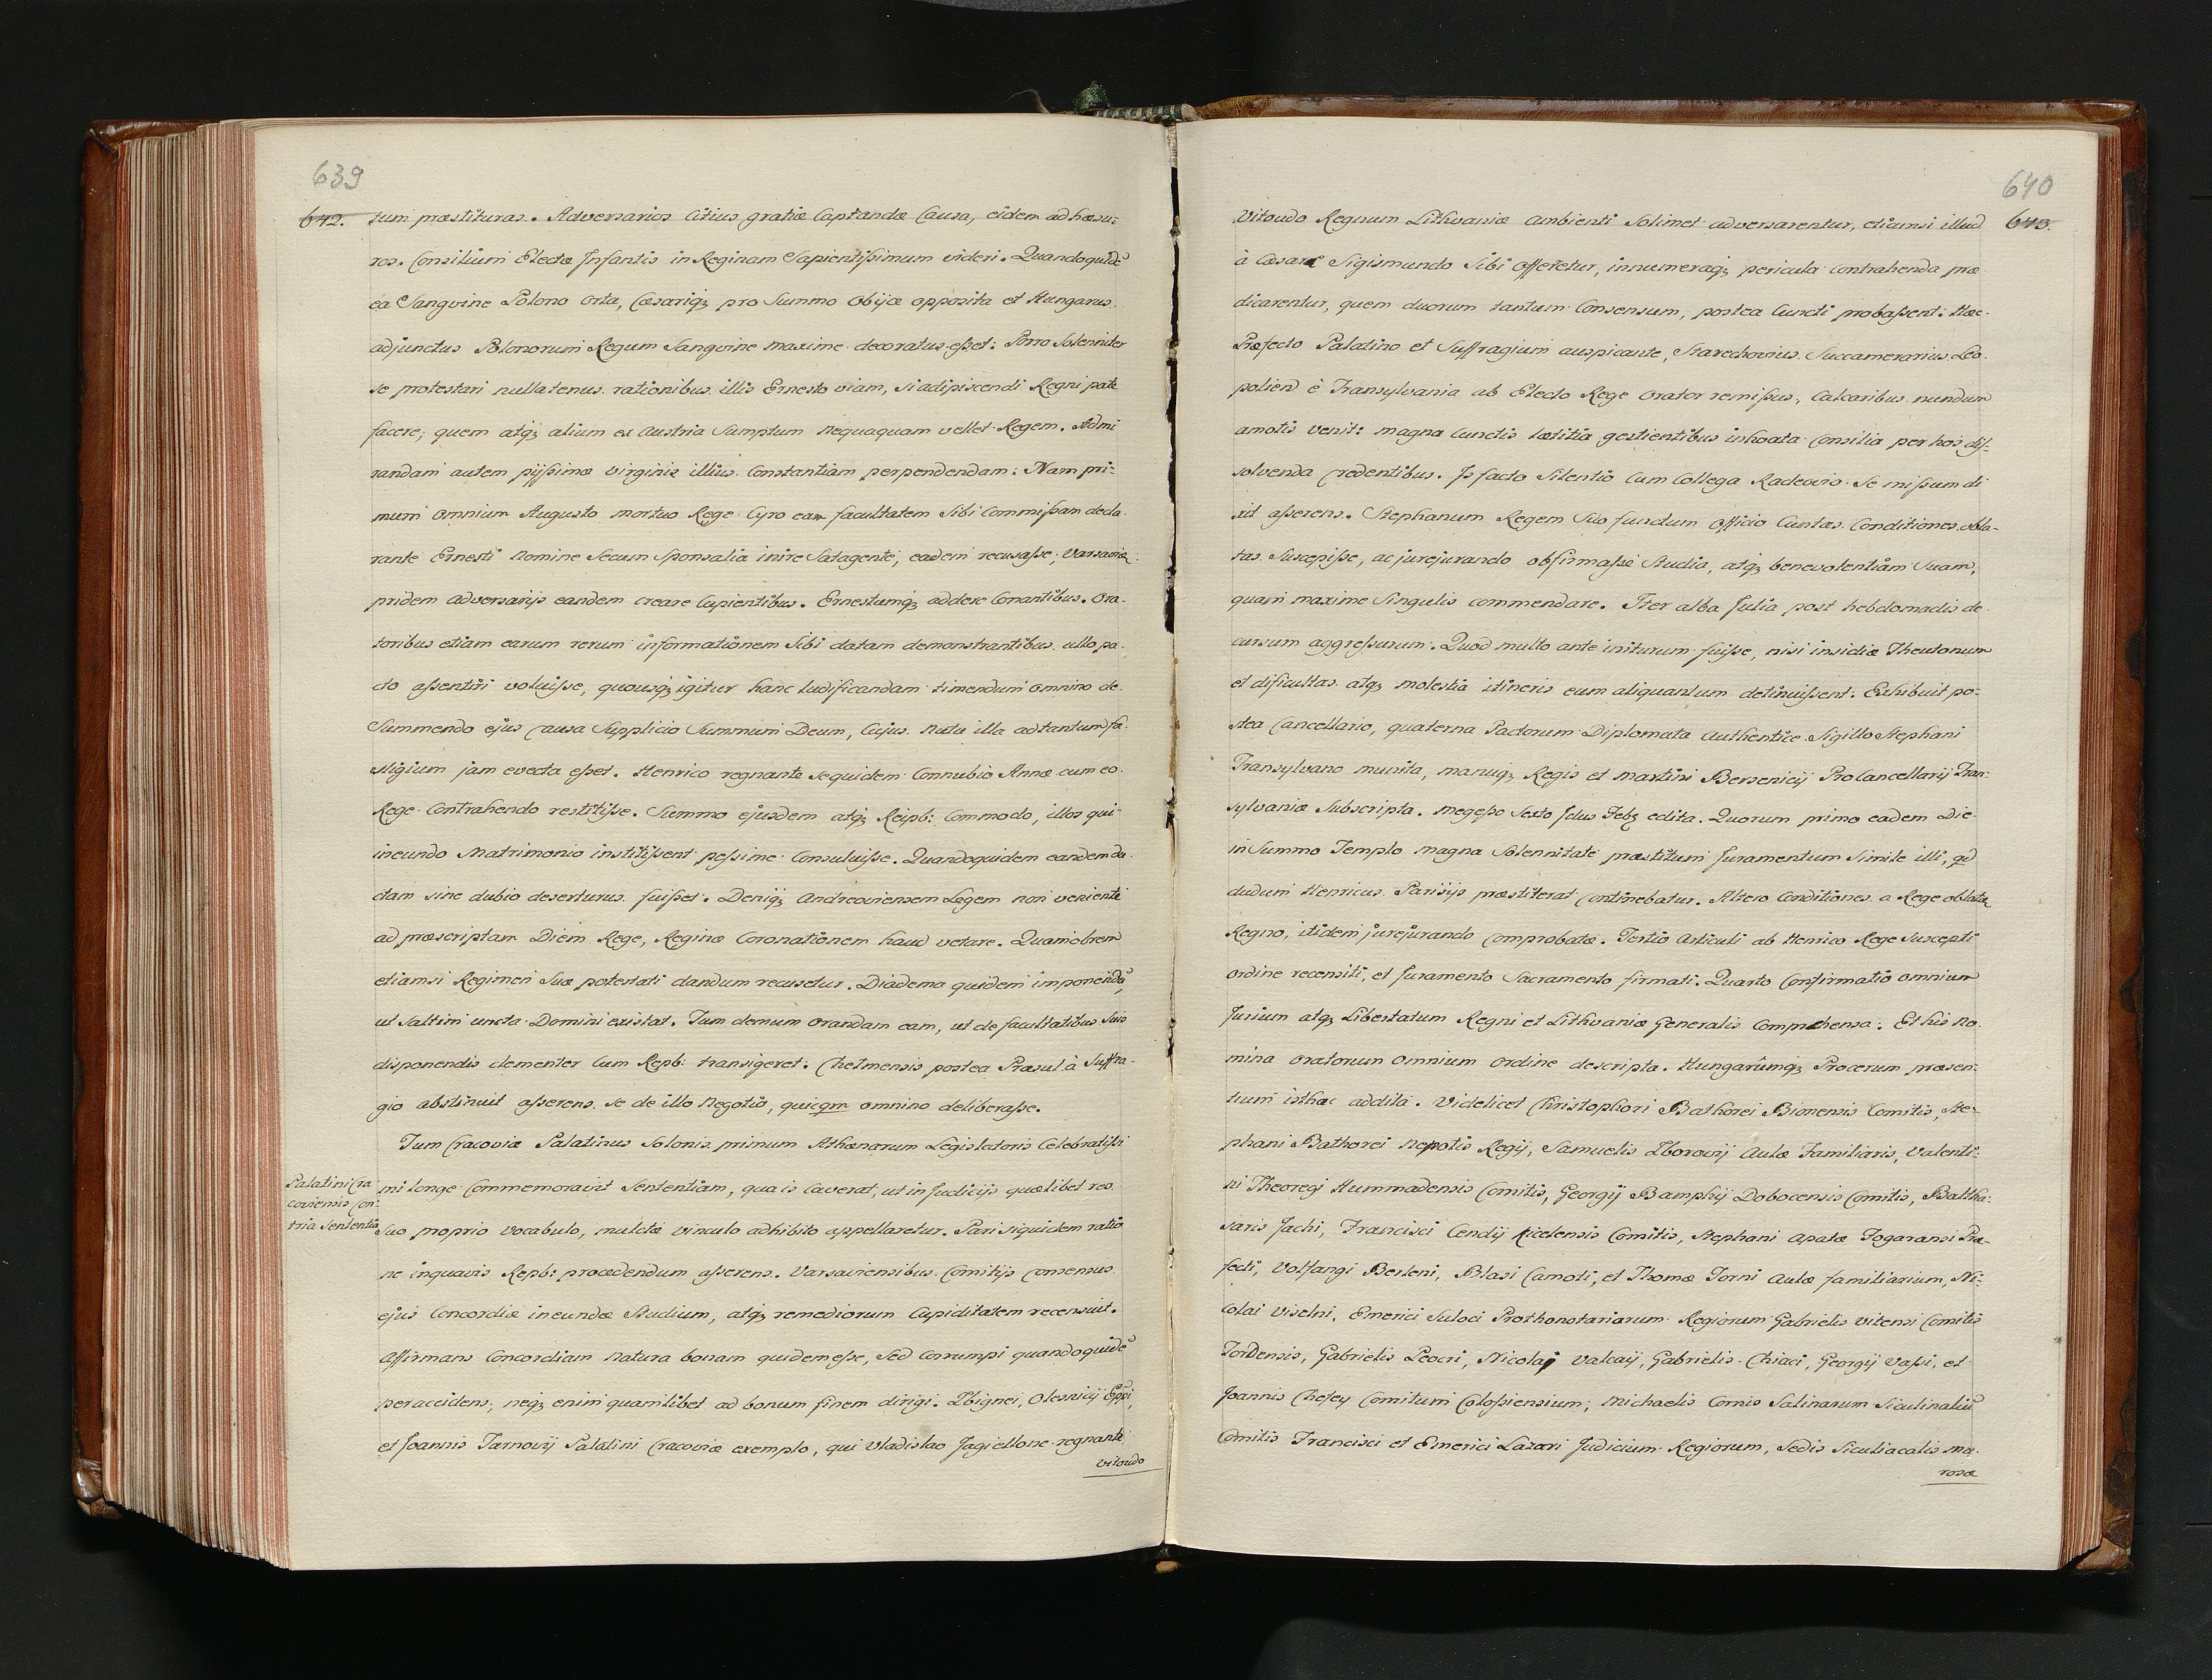 639
642.
tum præstituras. Adversarios Citius gratiæ Captandæ Causa, eidem adhæsu-
ros. Consilium Electæ Infantis in Reginam Sapientissimum videri. Quandoquidē
ea Sangvine Polono Orta, Cæsariq; pro Summo Obijce opposita et Hungarus
adjunctus Polonorum Regum Sangvine maxime decoratus esset: Porro Solenniter
se protestari nullatenus rationibus illis Ernesto viam, si adipiscendi Regni pate
facere; quem atq; alium ex Austria Sumptum nequaquam vellet Regem. Admi
randam autem pijssimæ virginis illius Constantiam perpendendam: Nam pri-
mum omnium Augusto mortuo Rege Cyro eam facultatem Sibi Commissam decla-
rante Ernesti Nomine Secum Sponsalia inire Satagente, eadem recusasse; Varsaviæ
pridem adversarijs eandem creare Cupientibus. Ernestumq; addere Conantibus. Ora-
toribus etiam earum rerum informationem Sibi datam demonstrantibus ullo pa-
cto assentiri voluisse, quousq; igitur hanc ludificandam timendum omnino de
Summendo ejus causa Supplicio Summum Deum, Cujus Nutu illa ad tantum fa-
stigium jam evecta esset. Henrico regnante sequidem Connubio Annæ cum eo
Rege Contrahendo restitisse. Summo ejusdem atq; Reipb: Commodo, illos qui
ineundo Matrimonio institissent pessime Consuluisse. Quandoquidem eandem du-
ctam sine dubio deserturus fuisset. Deniq; Andreoviensem Legem non veniente
ad præscriptam Diem Rege, Reginæ Coronationem haud vetare. Quamobrem
etiamsi Regimen Suæ potestati dandum recusetur. Diadema quidem imponendū,
ut Saltim uncta Domini existat. Tum demum Orandam eam, ut de facultatibus Suis
disponendis clementer Cum Repb: transigeret. Chelmensis postea Præsul à Suffra-
gio abstinuit asserens se de illo Negotio, quicqm omnino deliberasse.
Tum Cracoviæ Palatinus Solonis primum Athænarum Legislatoris Celebratissi
Palatini Cra
coviensis Con-
tria Sententia
mi longe Commemoravit Sententiam, qua is Caverat, ut in Judicijs quælibet res
Suo proprio Vocabulo, mulctæ vinculo adhibito appellaretur. Pari siquidem ratio
ne inquavis Repb: procedendum asserens. Varsaviensibus Comitijs consensus
ejus Concordiæ ineundæ Studium, atq; remediorum Cupiditatem recensuit.
Affirmans Concordiam Natura bonam quidem esse, Sed Corrumpi quandoquidē
per accidens; neq; enim quamlibet ad bonum finem dirigi. Zbignei, Olesnicij Eppi,
et Joannis Tarnovij Palatini Cracoviæ exemplo, qui Vladislao Jagiellone regnante
vitoudo
640
643.
Vitoudo Regnum Lithvaniæ Ambienti Solimet adversarentur, etiamsi illud
à Cæsare Sigismundo Sibi Offeretur, innumeraq; pericula contrahenda præ
dicarentur, quem duorum tantum Consensum, postea Cuncti probassent: Hac
Profecto Palatino et Suffragium auspicante, Starechovius Succamerarius Leo
polien è Transylvania ab Electo Rege Orator remissus, Calcaribus nundum
amotis venit: magna Cunctis lætitia gestientibus inhoata Consilia per hos dis-
solvenda credentibus. Is facto Silentio Cum Collega Radeovio Se missum di
xit asserens. Stephanum Regem Suo fundum Officio Cuntas Conditiones obla-
tas Suscepisse, ac jurejurando obfirmasse Studia, atq; benevolentiam Suam,
quam maxime Singulis commendare. Iter alba Julia post hebdomadis de
cursum aggressurum. Quod multo ante initurum fuisse, nisi insidiæ Theutonum
et dificultas atq; molestia itineris eum aliquantum detinuissent. Exhibuit po-
stea Cancellario, quaterna Pactorum Diplomata Authentice Sigillo Stephani
Transylvano munita, manuq; Regis et Martini Bersenicij Procancellarij Tran-
sylvaniæ Subscripta. Megeso Sexto Idus Feb; edita. Quorum primo eadem Die
in Summo Templo magna Solennitate præstitum Juramentum Simile illi, qd
dudum Henricus Parisijs præstiterat continebatur. Altero Conditiones a Rege oblatæ
Regno, itidem jurejurando comprobatæ. Tertio Articuli ab Henrico Rege Suscepti
Ordine recensiti, et Juramento Sacramento firmati. Quarto Confirmatio omnium
Jurium atq; Libertatum Regni et Lithvaniæ Generalis Comprehensa. Et his no-
mina Oratorum Omnium Ordine descripta. Hungarumq; Procerum præsen-
tium isthac addita. Videlicet Christophori Bathorei Bionensis Comitis, Ste-
phani Bathorei Nepotis Regij, Samuelis Zborovij Aulæ Familiaris, Valenti-
ni Theoregi Hummadensis Comitis, Georgij Bamphij Dobocensis Comitis, Baltha-
saris Jachi, Francisci Cendij Kicelensis Comitis, Stephani Apatæ Fogaransi Præ-
fecti, Volfangi Berleni, Blasi Camoti, et Thomæ Torni Aulæ familiarium, Ni-
colai Viselni, Emerici Suloci Prothonotariarum Regiorum Gabrielis Vitensi Comitis
Tordensis, Gabrielis Leocri, Nicolaj Valcaij, Gabrielis Chiaci, Georgij Vassi, et
Joannis Chesey Comitum Colossiensium; Michaelis Cornis Salinarum Siculinaliū
Comitis Francisci et Emerici Lazari Judicium Regiorum, Sedis Siculiacalis Ma-
rosæ